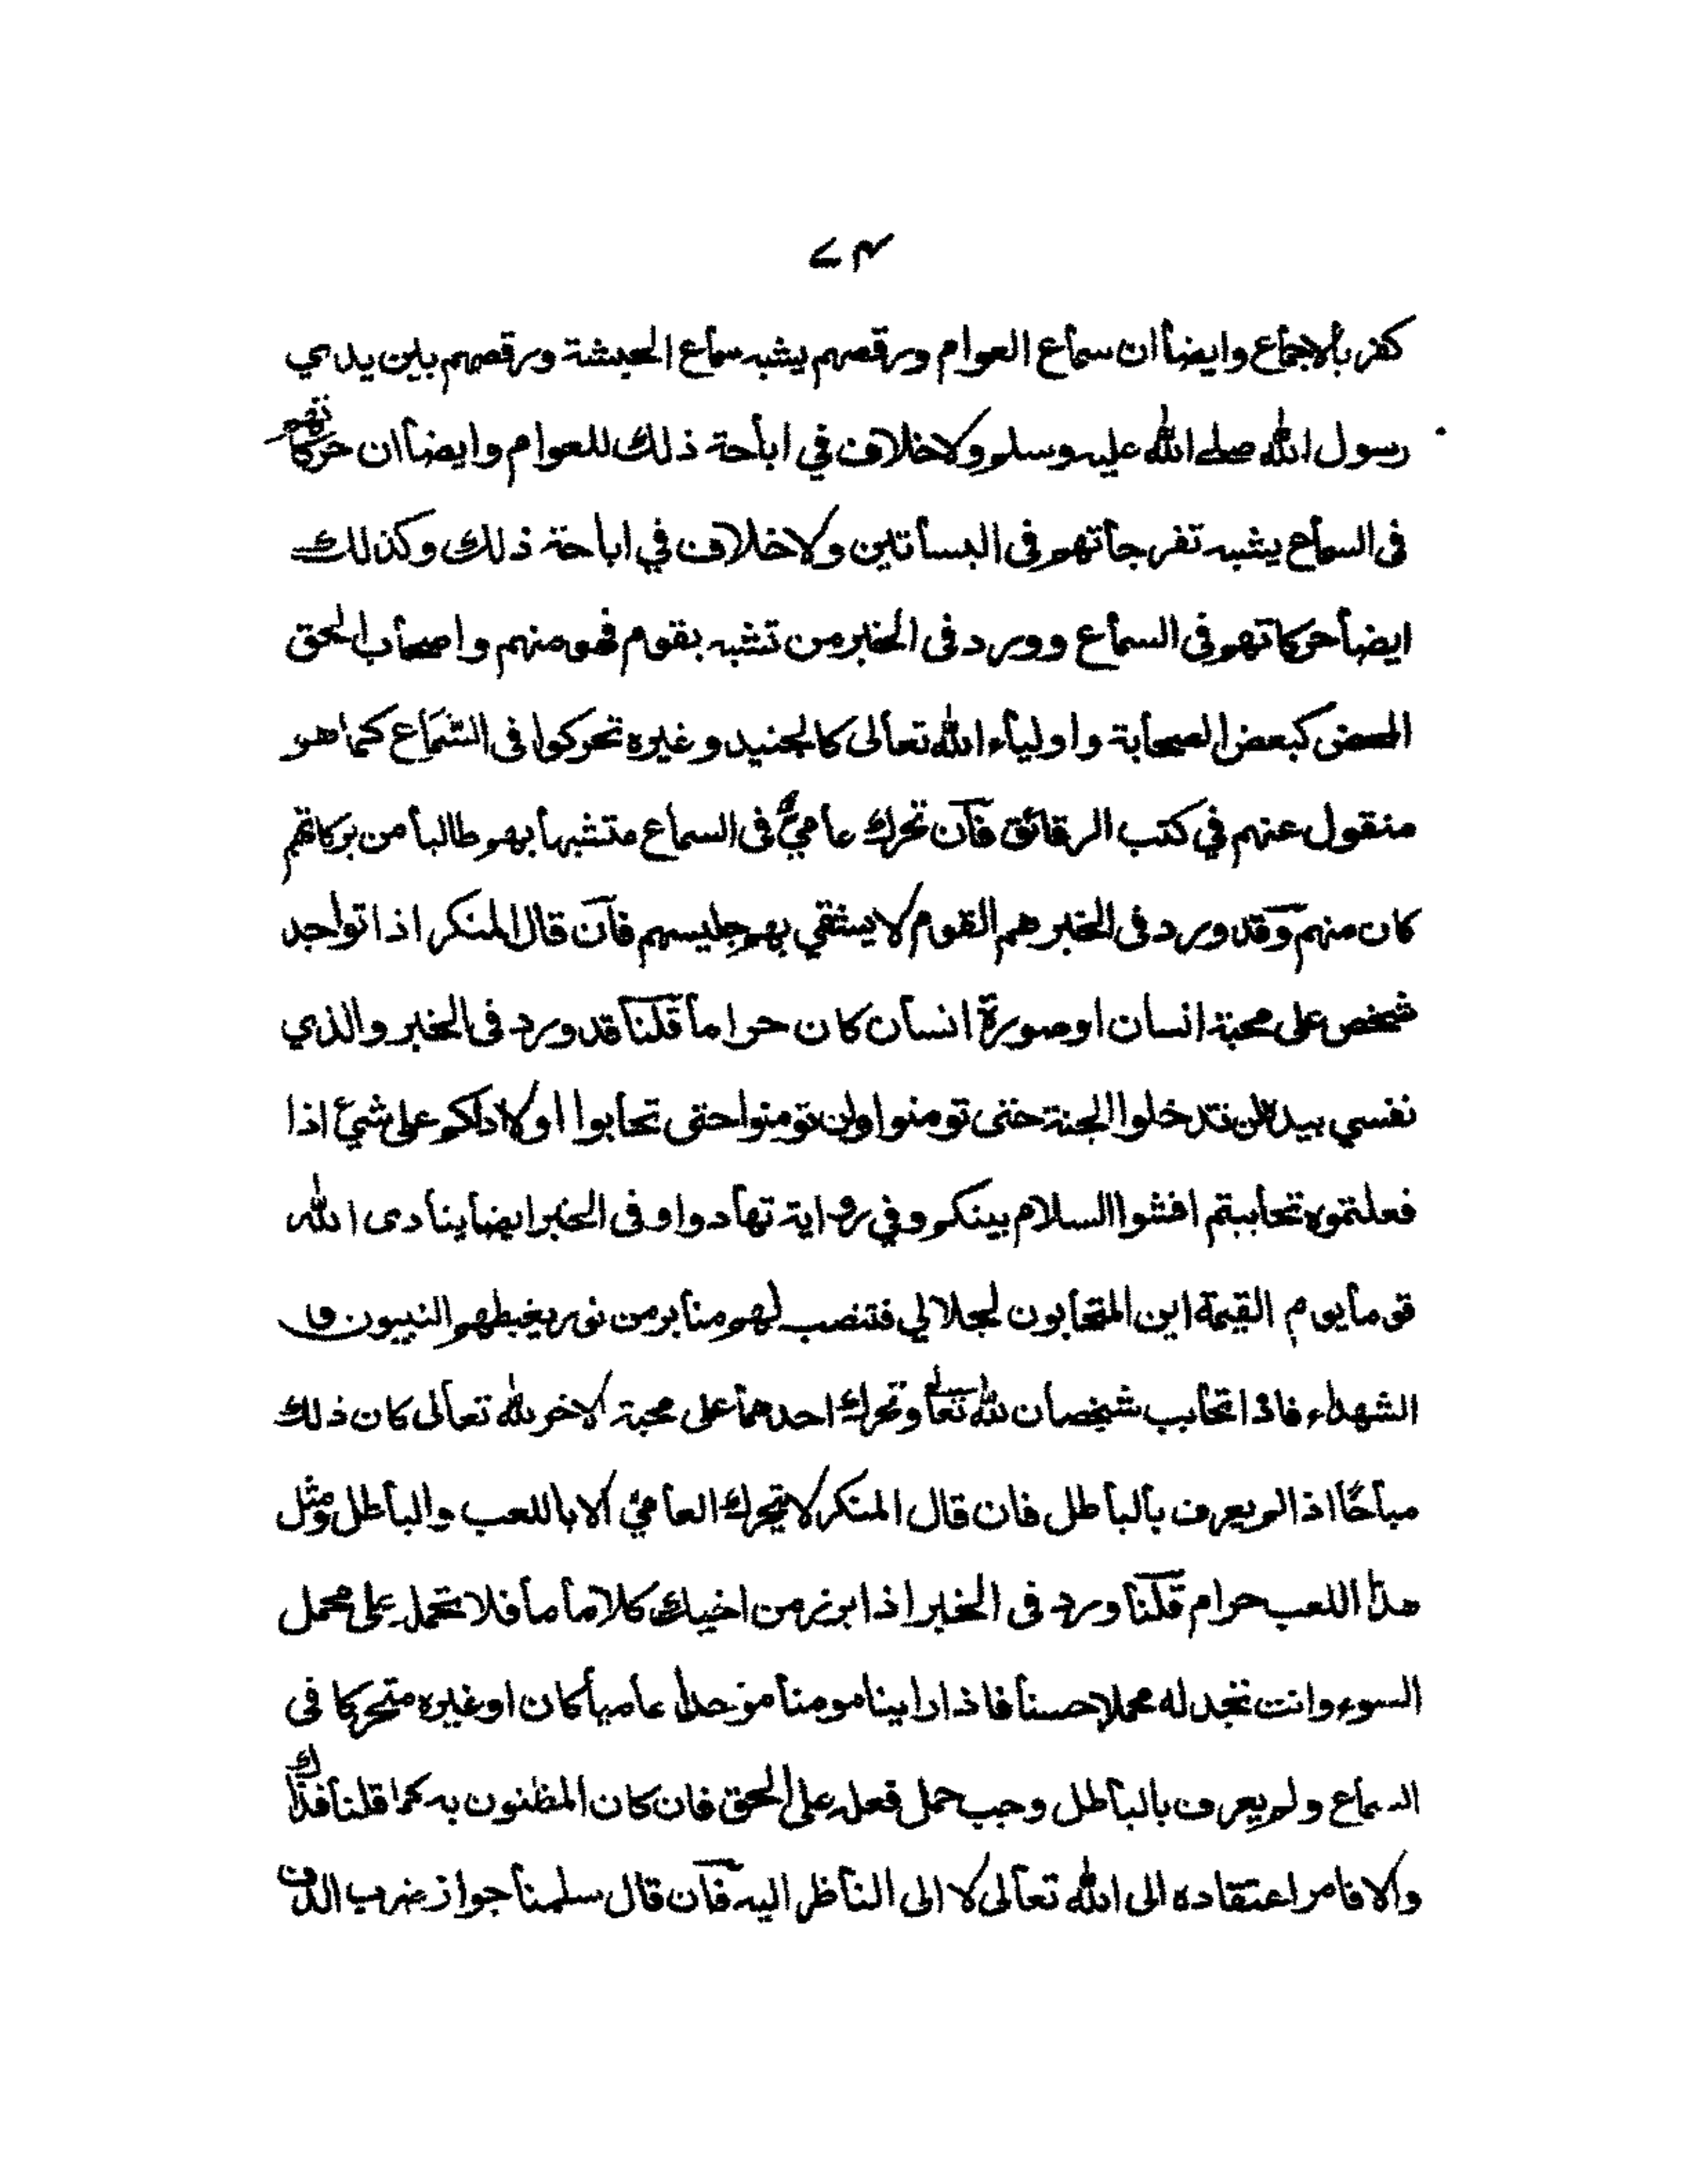 ۷۴
كفر بالاجماع وايضا ان سماع العوام ورقصهم يشبه سماع الحبشة ورقصهم بين يدي
رسول الله صلى الله عليه وسلم ولا خلاف في اباحة ذلك للعوام وايضا ان حركاتهم
فى السماع يشبه تفرجاتهم فى البساتين ولا خلاف في اباحة ذلك وكذلك
ايضا حركاتهم فى السماع وورد فى الخبر من تشبه بقوم فهو منهم واصحاب الحق
المحض كبعض الصحابة واولياء الله تعالى كالجنيد وغيره تحركوا فى السّمَاع كما هو
منقول عنهم في كتب الرقائق فان تحرك عاميٌّ فى السماع متشبها بهم طالبا من بركاتهم
كان منهم وقد ورد فى الخبر هم القوم لا يشقي بهم جليسهم فان قال المنكر اذا تواجد
شخص على محبة انسان او صورة انسان كان حراما قلنا قد ورد فى الخبر والذي
نفسي بيده لن تدخلوا الجنة حتى تومنوا ولن تومنوا حتى تحابوا اولا ادلكم على شيء اذا
فعلتموه تحاببتم افشوا السلام بينكم وفي رواية تهادوا وفى الخبر ايضا ينادى الله
قوما يوم القيمة اين المتحابون لجلالي فتنصب لهم منابر من نور يغبطهم النبيون و
الشهداء فاذا تحابب شخصان لله تعالى وتحرك احدهما على محبة الاخر لله تعالى كان ذلك
مباحًا اذا لم يعرف بالباطل فان قال المنكر لا يتحرك العامي الا باللعب والباطل ومثل
هذا اللعب حرام قلنا ورد فى الخبر اذا برز من اخيك كلاما ما فلا تحمله على محمل
السوء وانت تجد له محملا حسنا فاذا راينا مومنا موحدا عاميا كان او غيره متحركا فى
السماع ولم يعرف بالباطل وجب حمل فعله على الحق فان كان المظنون به كما قلنا فذاك
والا فامر اعتقاده الى الله تعالى لا الى الناظر اليه فان قال سلمنا جواز ضرب الدف